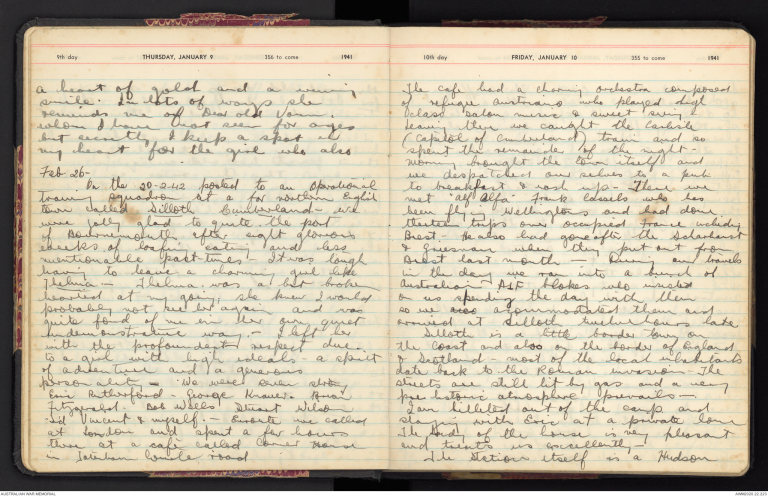 9th day THURSDAY, JANUARY 9 356 to come 1941
a heart of gold and a winning
smile. In lots of ways she
reminds me of Dear old
whom I have not seen for ages
but secretly I keep a spot in
my heart for the girl who also
Feb 26-
On the 20-2-42 posted to an Operational
training squadron at a far northern English
town called Silloth - Cumberland - we
were jolly glad to quite the port
of Bournemouth after eight glorious
weeks of loafing eating and less
mentionable past-times - It was tough
having to leave a charming girl like
Thelma - Thelma was a bit broken
hearted at my going, she knew I would
probably not see her again and was
quite fond of me in her own quiet
undemonstrative way. - I left her
with the profoundest respect due
to a girl with high ideals - a spirit
of adventure and a generous
personality - We were seven strong
Eric Rutherford - George - Brian
Fitzgerald - Bob Wells Stuart Wilson
Sid Vincent & myself - Enroute we called
at London and spent a few hours
there at a cafe called Corner House
in Tottenham Court road
10th day FRIDAY, JANUARY 10 355 to come 1941
The cafe had a charming orchestra composed
of refugee Austrians who played high
class salon music & sweet swing -
Leaving there we caught the Carlisle
(Capitol of Cumberland) train and so
spent the remainder of the night.
Morning brought the town itself and
we despatched our selves to a pub
to breakfast & wash up - There we
met "Alf Alfa" Frank Lassels who has
been flying Wellingtons and had done
thirteen trips over occupied France including
Brest - He also had gone after the Scharnhorst
& Gneisnau when they put out from
Brest last month - During our travels
in the day we ran into a bunch of
Australian AIF blokes who insisted
on us spending the day with them
so we accommodated them and
arrived at Silloth twelve hours late
Silloth is a little border town on
the coast and also on the border of England
& Scotland - most of the local inhabitants
date back to the Roman invasion - The
streets are still lit by gas and a very
pre historic atmosphere prevails -
I am billeted out of the camp and
staying with Eric at a private home
The lady of the house is very pleasant
and treats us excellently
The Station itself is a Hudson
AUSTRALIAN WAR MEMORIAL